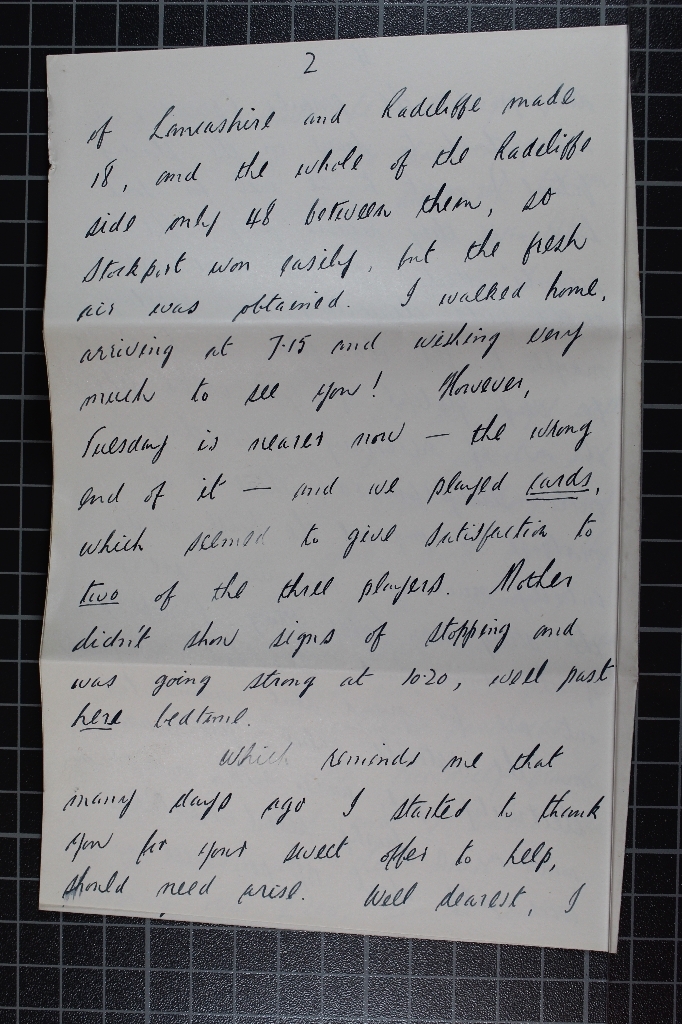 2
of Lancashire and Radcliffe made
18, and the whole of the Radcliffe
side only 48 between them, so
Stockport won easily, but the fresh
air was obtained. I walked home,
arriving at 7.15 and wishing very
much to see you! However,
Tuesday is nearer now — the wrong
end of it — and we played cards,
which seemed to give satisfaction to
two of the three players. Mother
didn't show signs of stopping and
was going strong at 10.20, well past
here bedtime.
Which reminds me that
many days ago I started to thank
you for your sweet offer to help,
should need arise. Well dearest, I